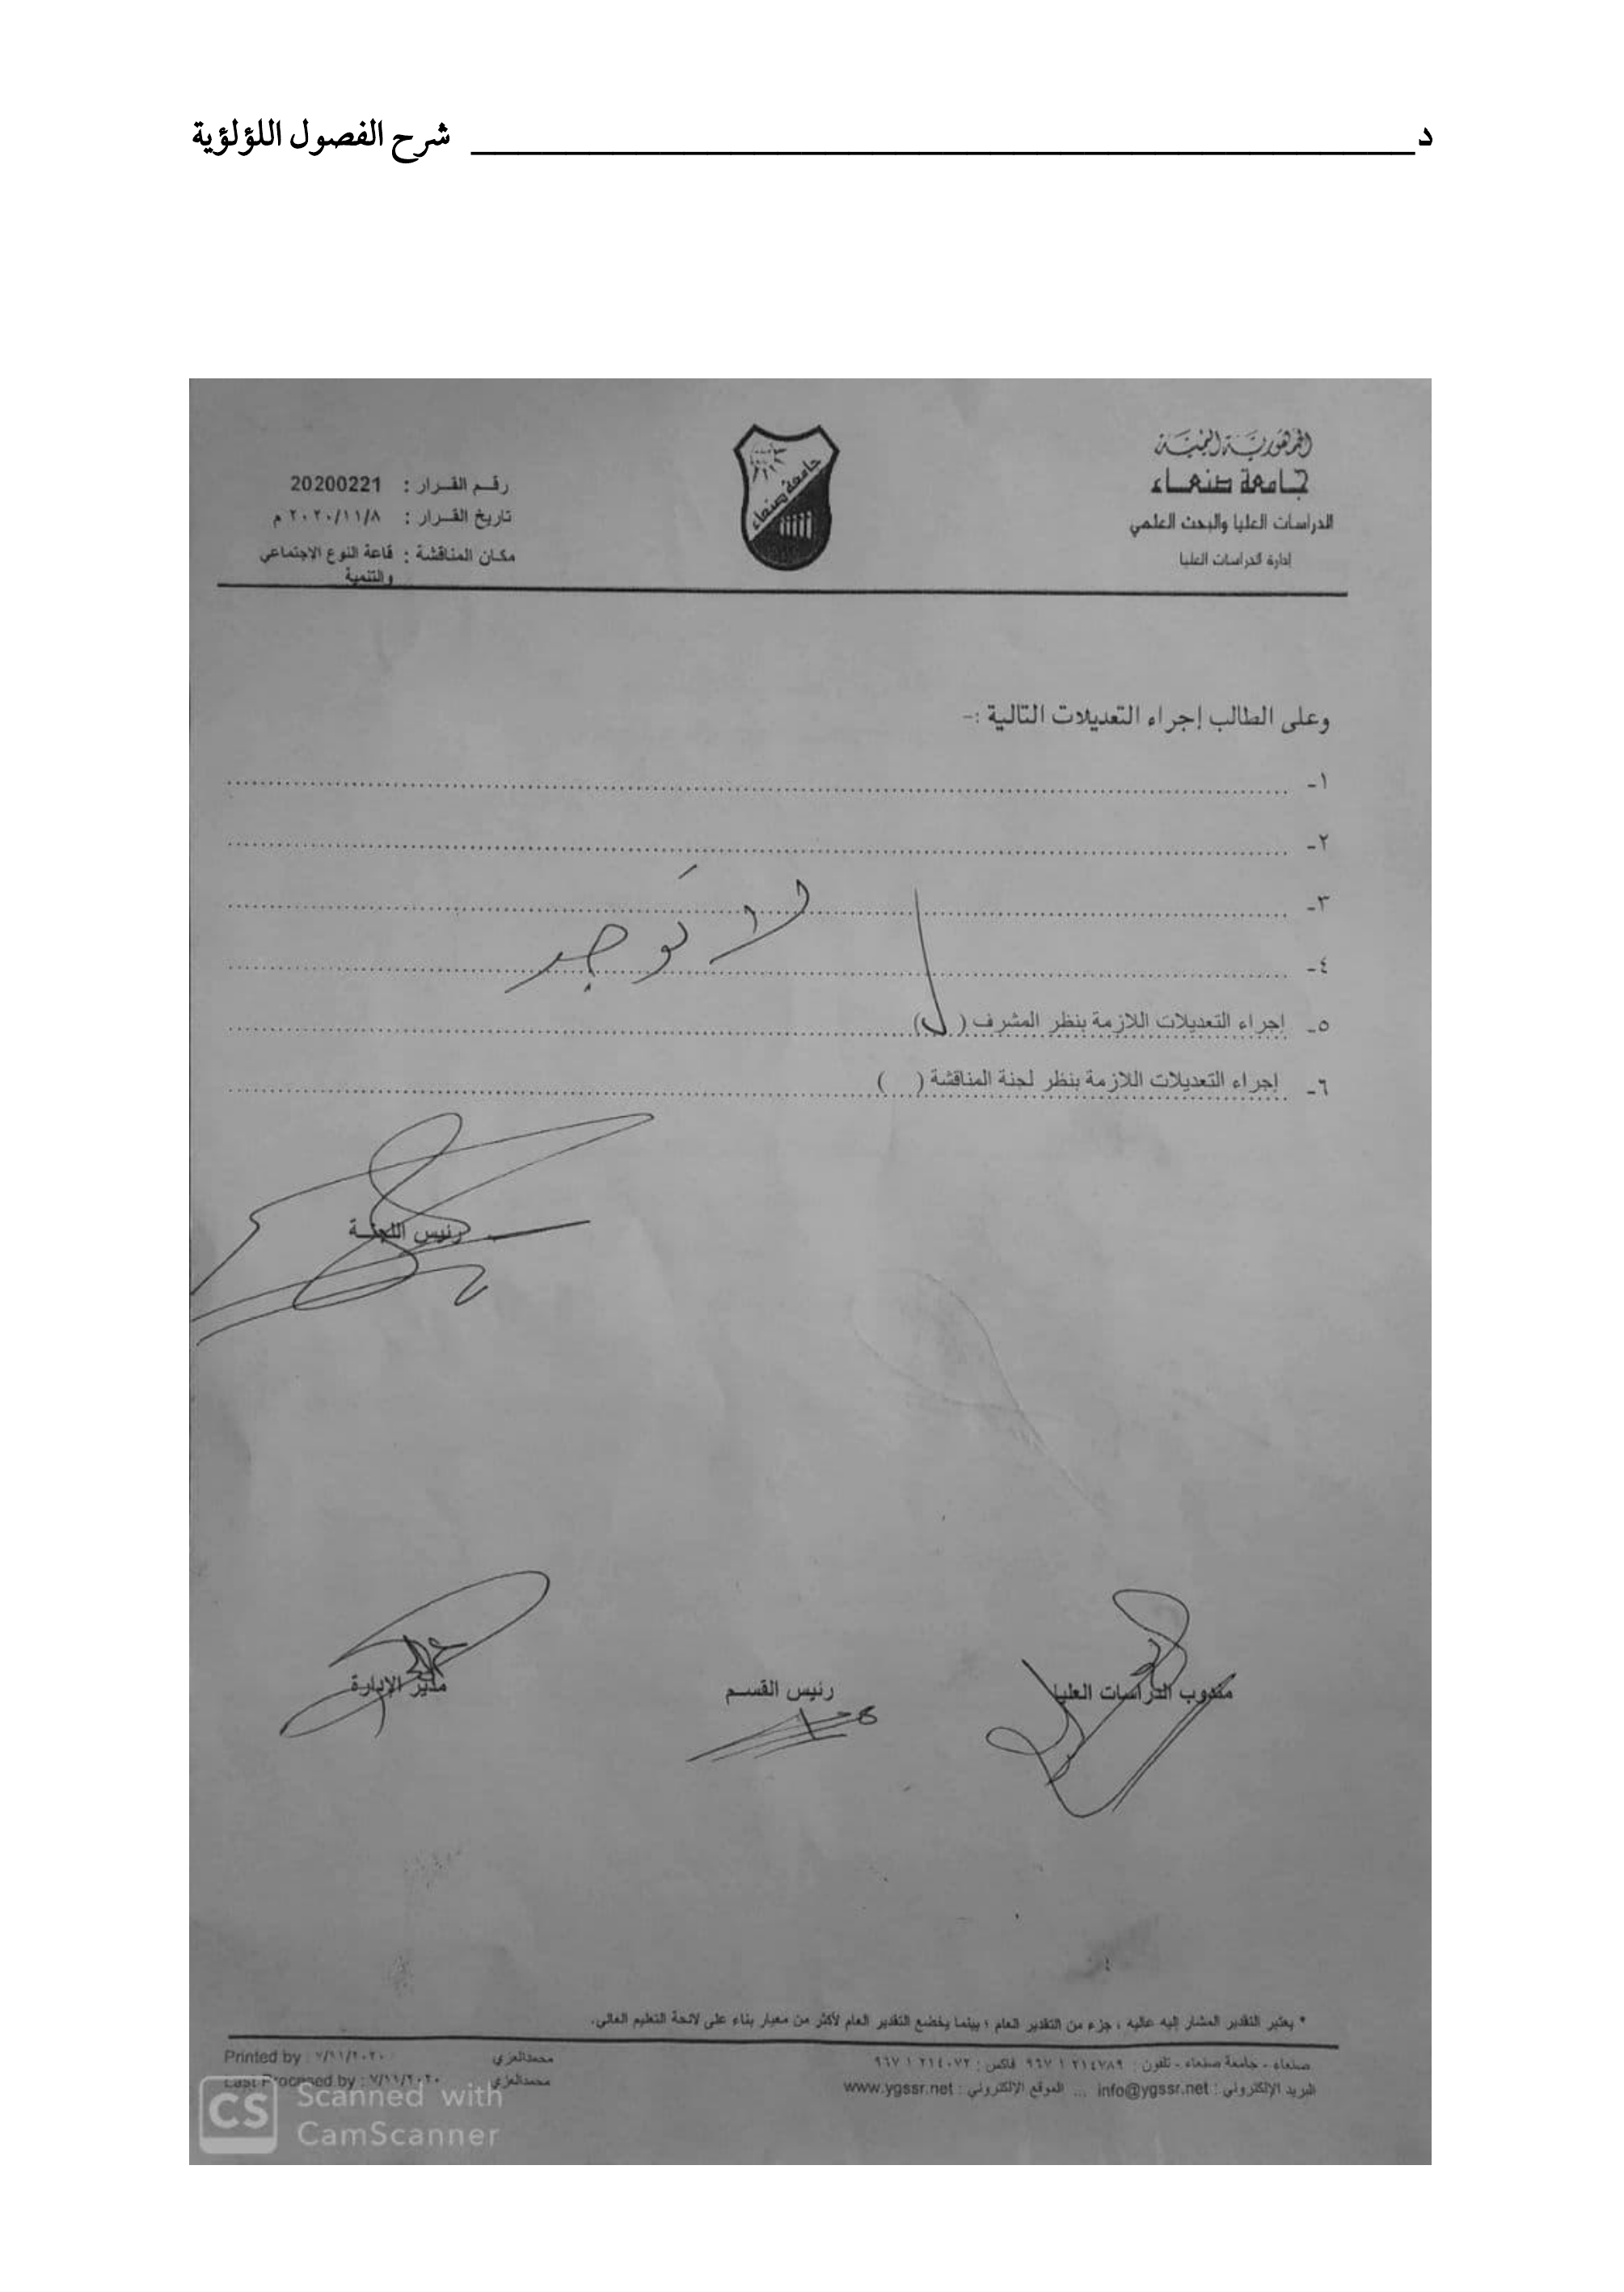 د شرح الفصول اللؤلؤية
الجمهورية اليمنية
جامعة صنعاء
الدراسات العليا والبحث العلمي
إدارة الدراسات العليا
جامعة صنعاء
رقم القرار : 20200221
تاريخ القرار : ٢٠٢٠/١١/٨ م
مكان المناقشة : قاعة النوع الاجتماعي
والتنمية
وعلى الطالب إجراء التعديلات التالية :-
١-
٢-
٣-
لا توجد
٤-
٥- إجراء التعديلات اللازمة بنظر المشرف ( )
٦- إجراء التعديلات اللازمة بنظر لجنة المناقشة ( )
رئيس اللجنة
مندوب الدراسات العليا رئيس القسم مدير الإدارة
* يعتبر التقدير المشار إليه عاليه ، جزء من التقدير العام ؛ بينما يخضع التقدير العام لأكثر من معيار بناء على لائحة التعليم العالي.
صنعاء - جامعة صنعاء - تلفون : ٢١٤٧٨٩ ١ ٩٦٧ فاكس : ٢١٤٠٧٢ ١ ٩٦٧
البريد الإلكتروني : info@ygssr.net ... الموقع الإلكتروني : www.ygssr.net
محمد العزي Printed by : ٧/١١/٢٠٢٠
محمد العزي Last Procesed by : ٧/١١/٢٠٢٠
CS Scanned with
CamScanner